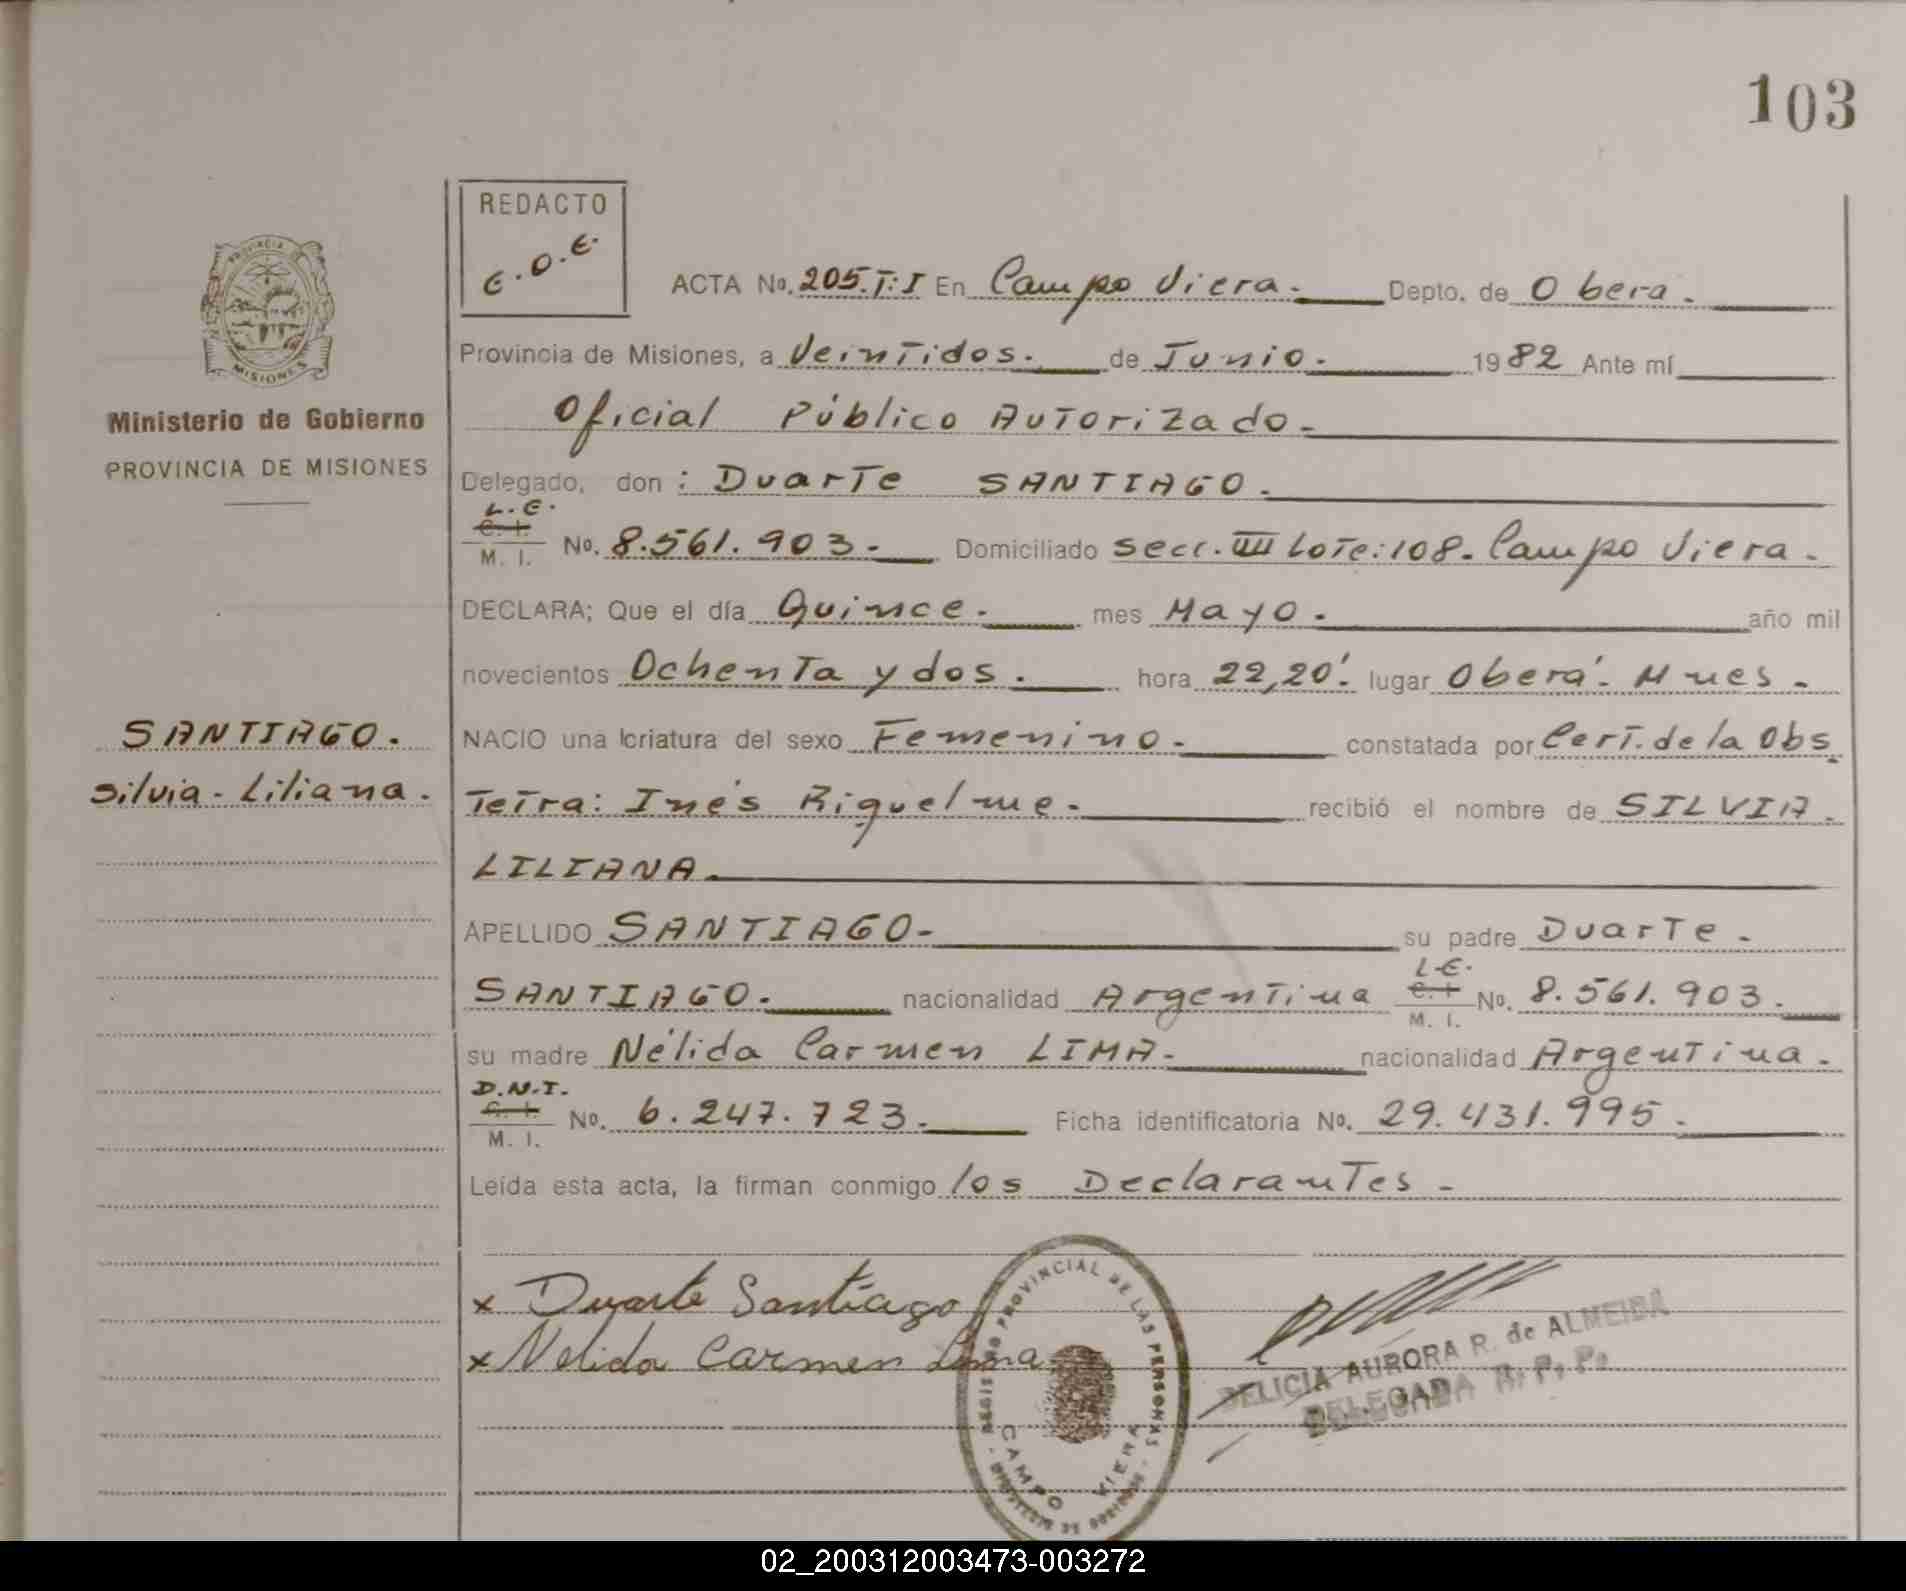 103
REDACTO
E.O.E.
ACTA No. 205.T:I En Campo Viera. Depto. de Obera.
PROVINCIA DE MISIONES
Provincia de Misiones, a Veintidos. de Junio. 1982 Ante mí
Ministerio de Gobierno
PROVINCIA DE MISIONES
Oficial Público Autorizado.
Delegado, don: Duarte SANTIAGO.
L.E.
C. I.
M. I. No. 8.561.903. Domiciliado Secc. III Lote: 108. Campo Viera.
DECLARA; Que el día Quince. mes Mayo. año mil
novecientos Ochenta y dos. hora 22,20'. lugar Oberá. Mnes.
SANTIAGO.
Silvia - Liliana.
NACIO una criatura del sexo Femenino. constatada por Cert. de la Obs
tetra: Inés Riquelme. recibió el nombre de SILVIA.
LILIANA.
APELLIDO SANTIAGO. su padre Duarte.
SANTIAGO. nacionalidad Argentina L.E. C. I. M. I. No. 8.561.903.
su madre Nélida Carmen LIMA. nacionalidad Argentina.
D.N.I.
C. I.
M. I. No. 6.247.723. Ficha identificatoria No. 29.431.995.
Leída esta acta, la firman conmigo los Declarantes.
x Duarte Santiago
x Nelida Carmen Lima
REGISTRO PROVINCIAL DE LAS PERSONAS
CAMPO VIERA
DELICIA AURORA R. de ALMEIDA
DELEGADA R. P. P.
02_200312003473-003272